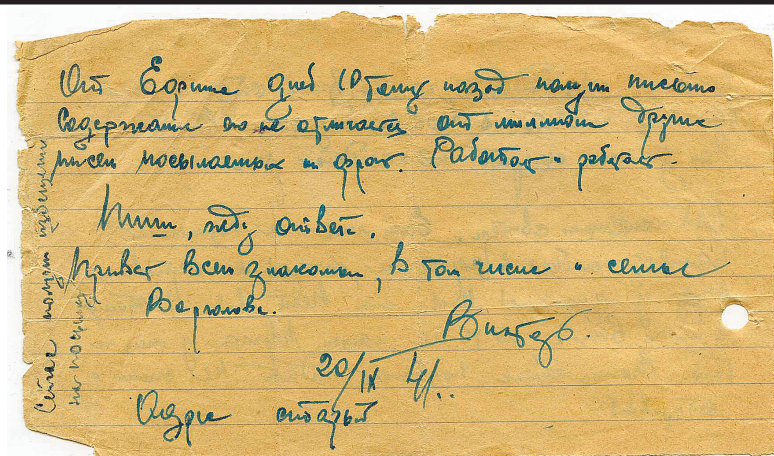 От дней 10 тому назад получил письмо
Содержание его не отличается от миллиона других
писем посылаемых на фронт. Работают и работают.
Пиши, жду ответа.
Привет всем знакомым, в том числе и семье
20/IX 41..
Адрес старый
Сейчас получил извещение
на посылку